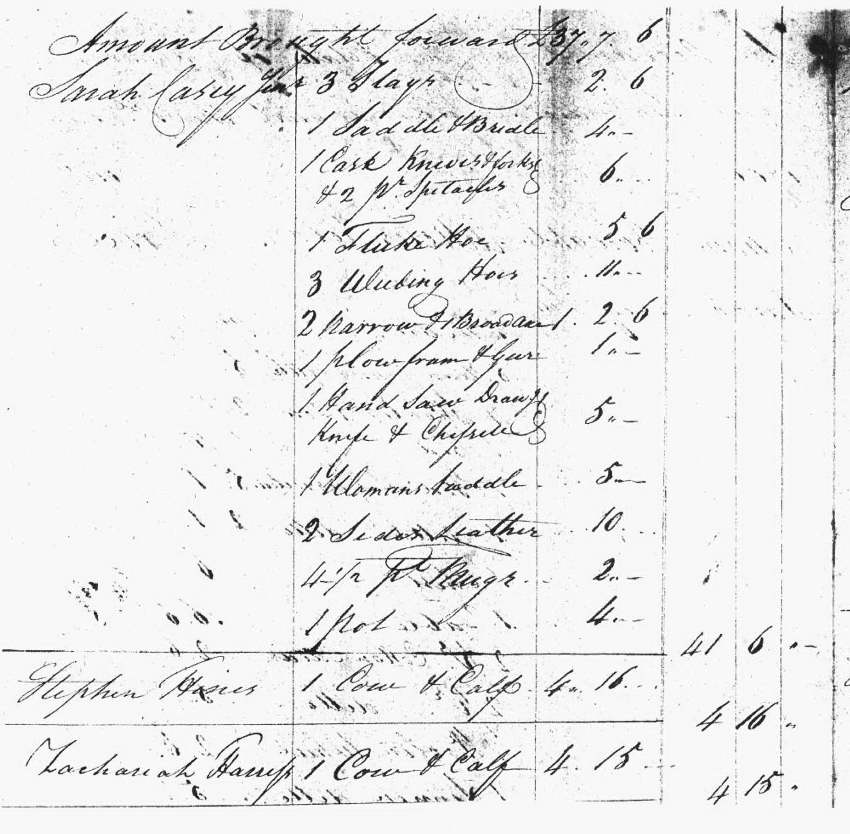 Amount Brought forward £37,,7. 6
Sarah Casey Junr 3 Slays - - 2. 6
1 Saddle & Bridle 4,,-
1 Cask Knives & forks
& 2 pr. Spetacles 6,,-
1 Fluke Hoe 5 6
3 Weeding Hoes 11,,-
2 Narrow & 1 Broad axe 1. 2. 6
1 plow fram & Gur 1,,-
1 Hand Saw Drawg
Knife & Chissel 5,,-
1 Womans Saddle 5,,-
2 Sides Leather 10
4 pr 2,,-
1 pot 4,,-
41 6 ,,-
Stephen 1 Cow & Calf 4,, 16
4 16 ,,
Zachariah Harris 1 Cow & Calf 4. 15
4 15 ,,